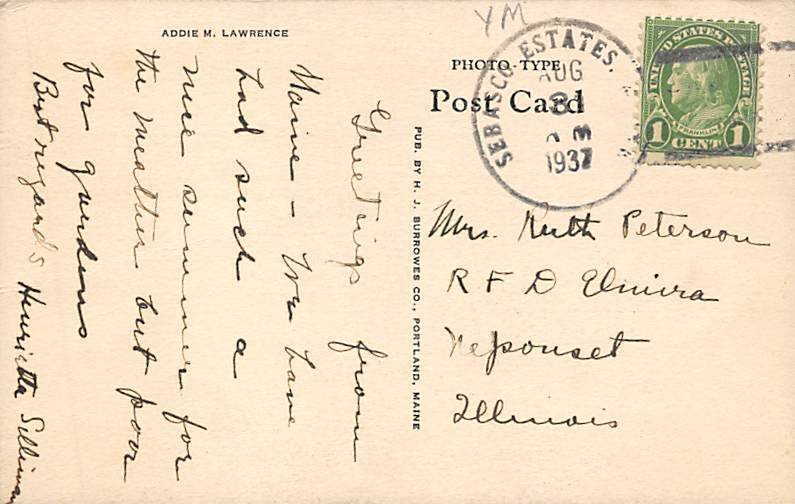 ADDIE M. LAWRENCE
Greetings from
Maine - We have
had such a
nice summer for
the weather but poor
for gardens
Best regards Henrietta Silliman
PUB. BY H. J. BURROWES CO., PORTLAND, MAINE
YM
PHOTO-TYPE
Post Card
SEBASCO ESTATES.
AUG
31
1937
UNITED STATES POSTAGE
FRANKLIN
1 CENT 1
Mrs. Ruth Peterson
R F D Elmira
Neponset
Illinois